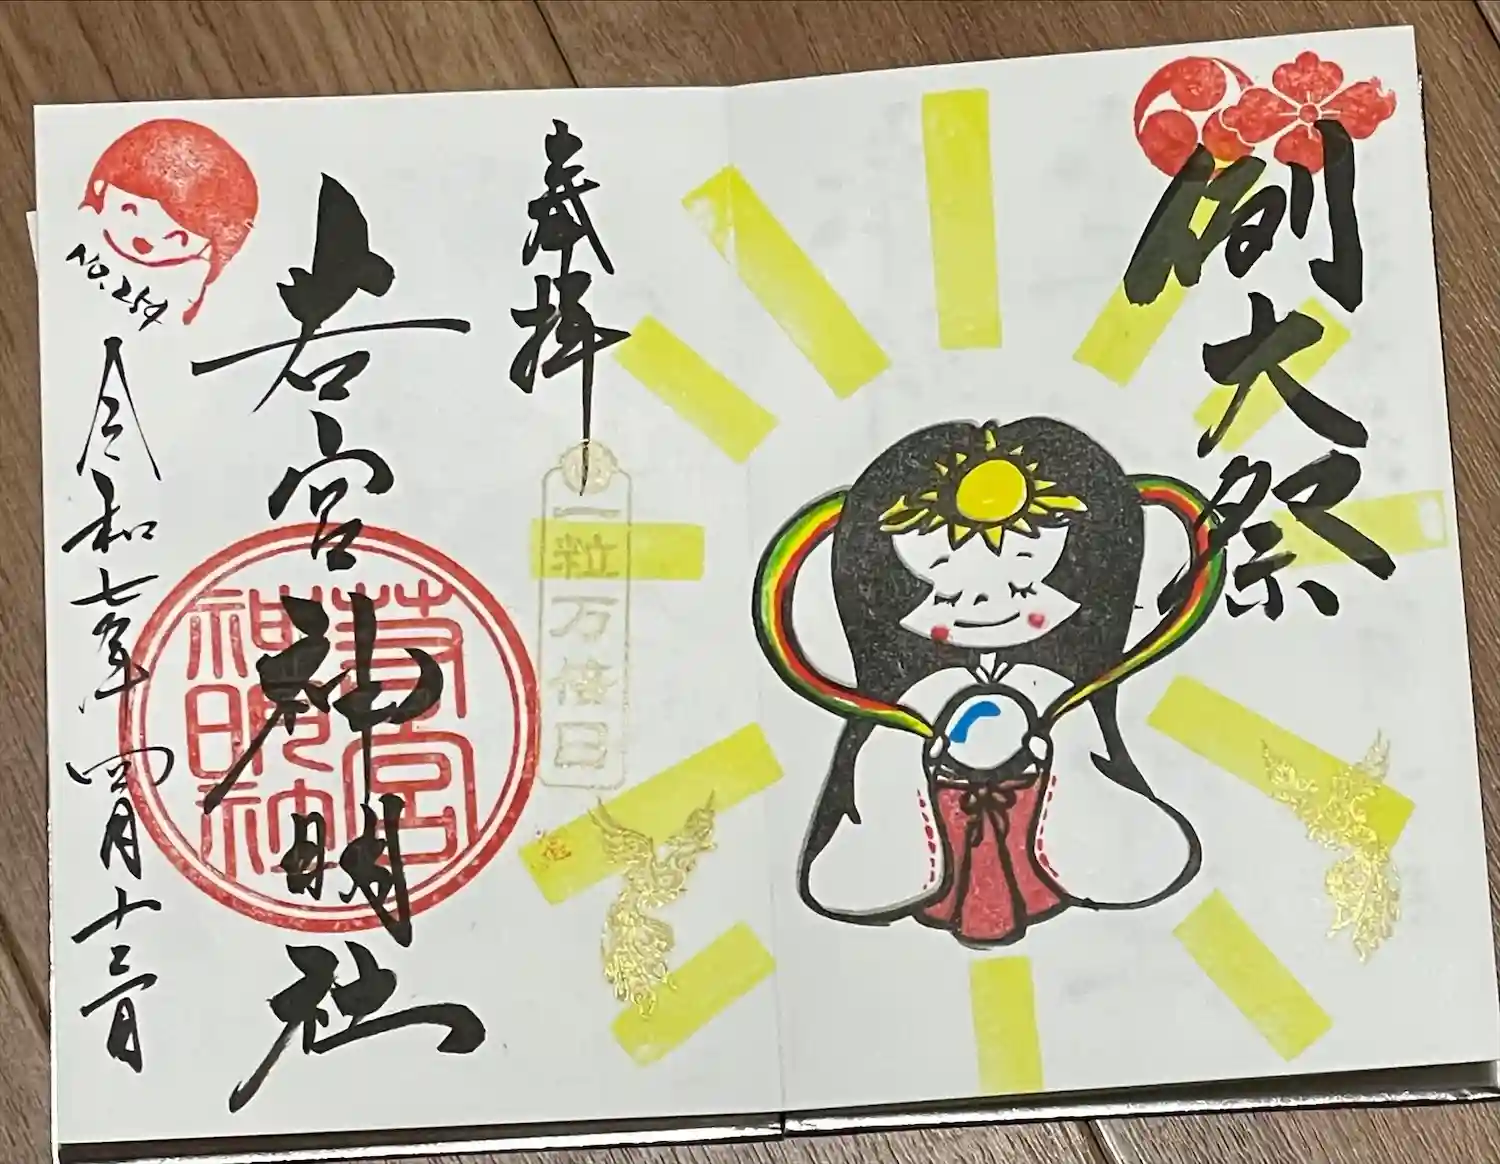 例大祭
奉拝
一粒万倍日
若宮神明社
若宮
神明社
令和七年四月十三日